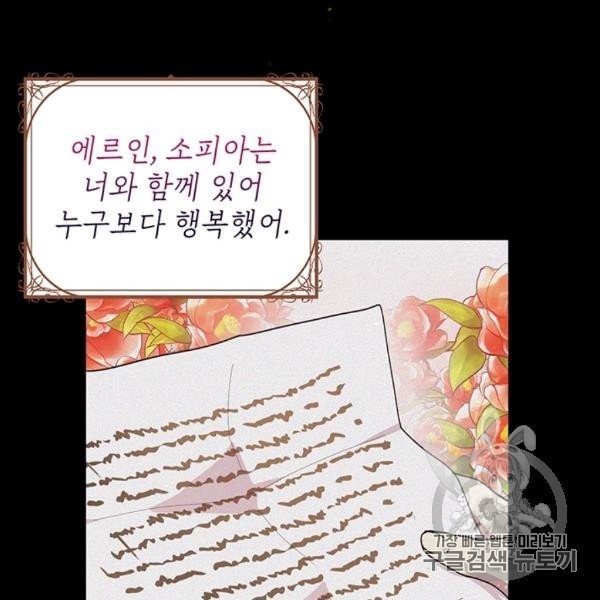 에르인, 소피아는
너와 함께 있어
누구보다 행복했어.
가장 빠른 웹툰 미리보기
구글검색 뉴토끼